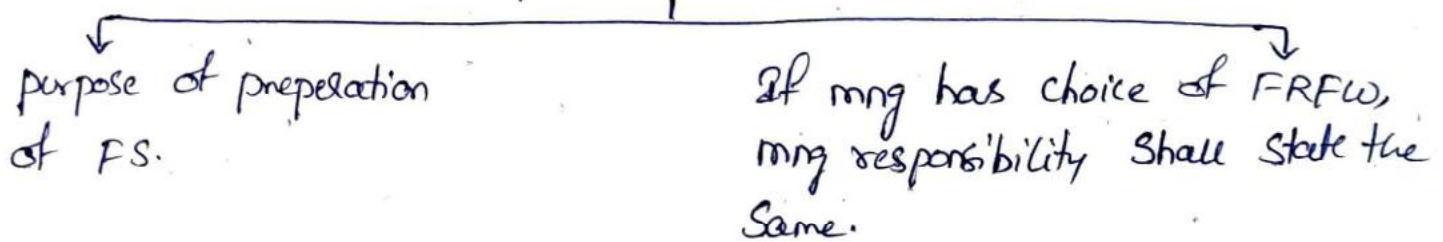 purpose of preperation
of FS.
If mng has choice of FRFW,
mng responsibility Shall State the
Same.